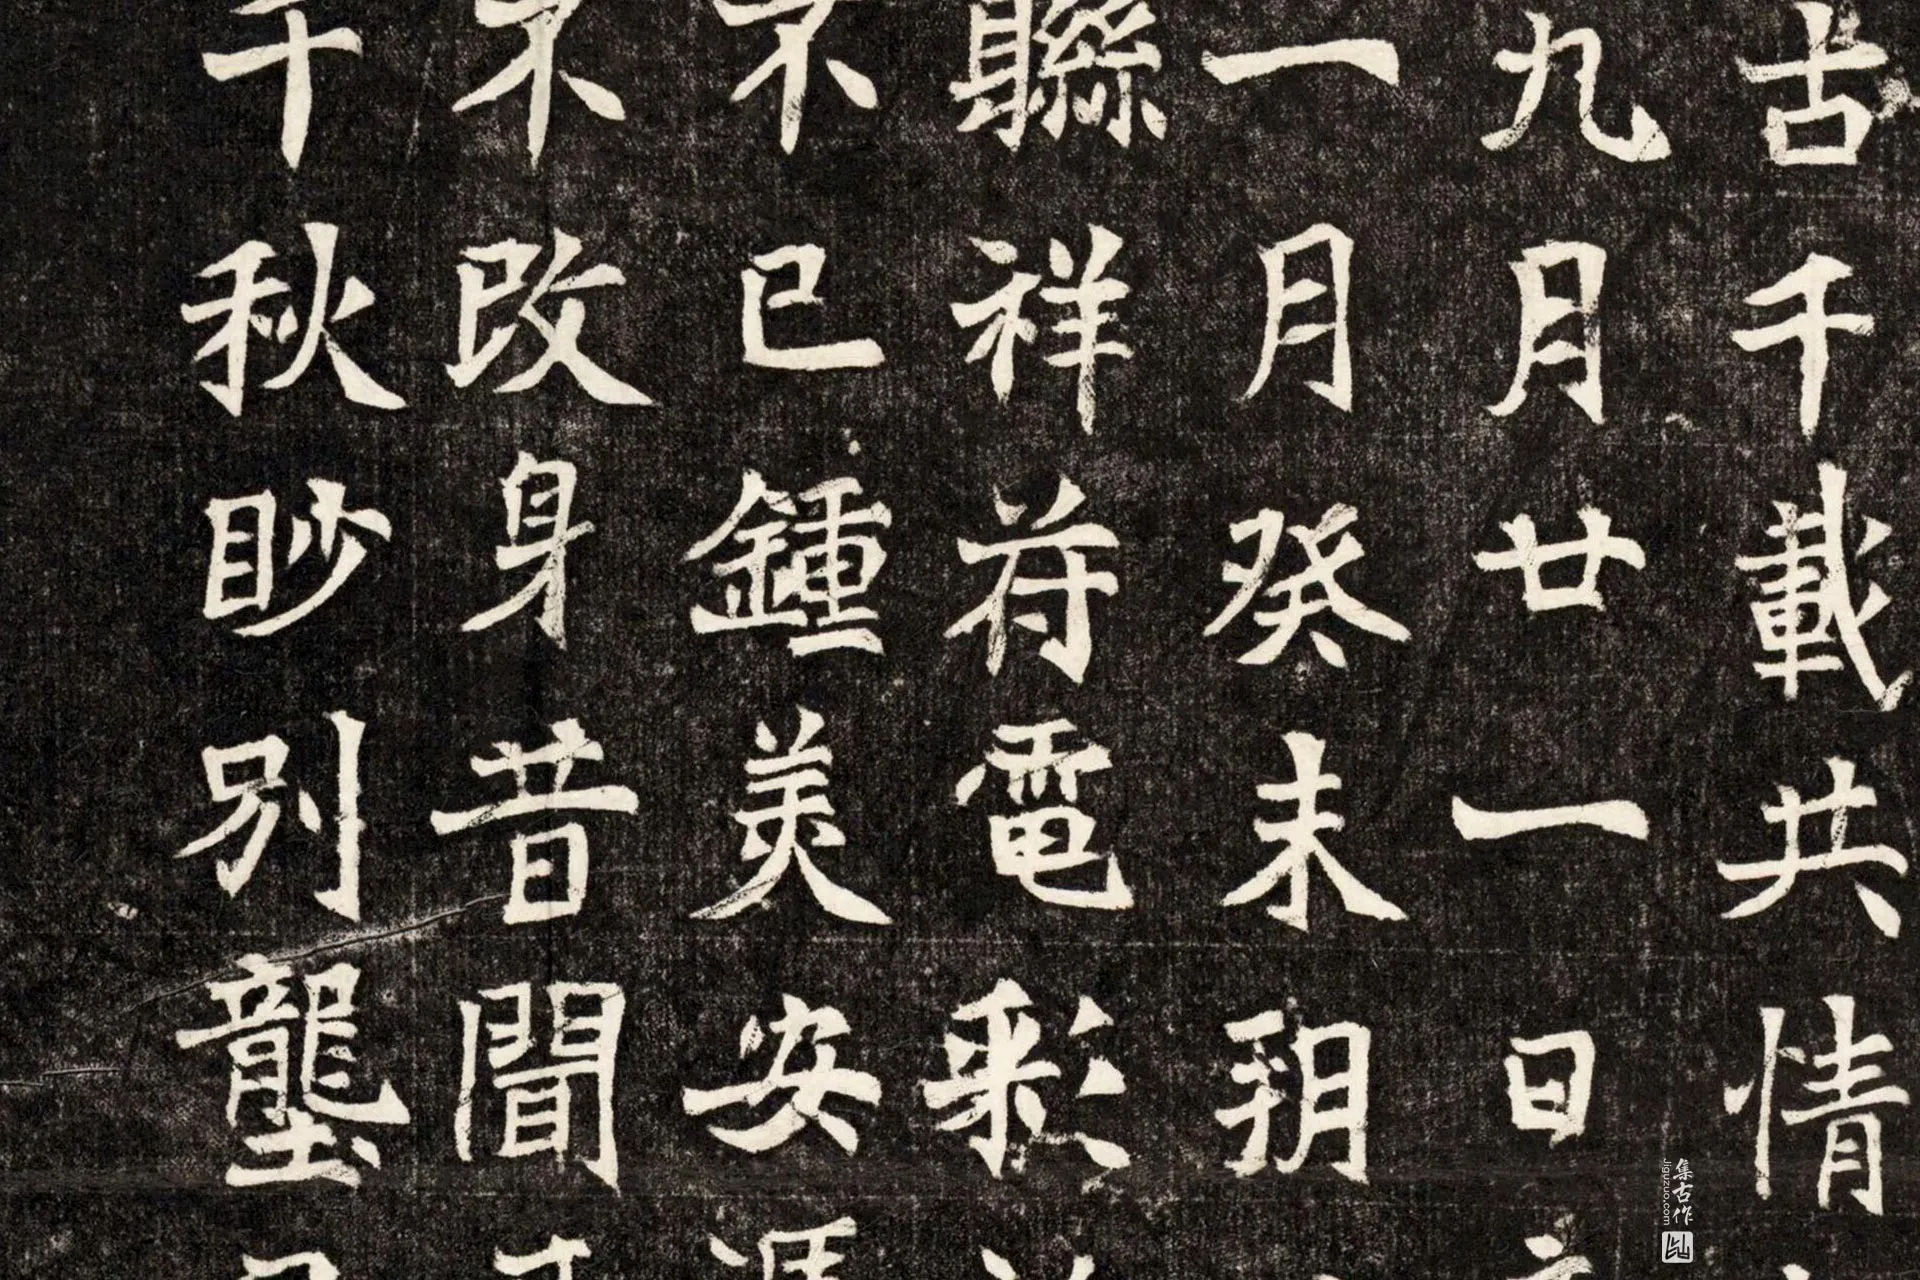 古千載共情
九月廿一日
一月癸未朔
聯祥苻電彩
不已鍾美安
不改身昔聞
千秋眇別壟
集古作
jiguzuo.com